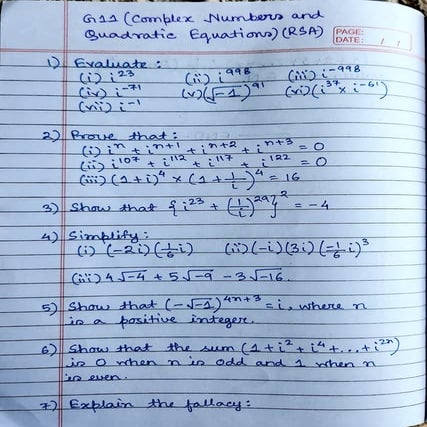 G11 (Complex Numbers and
Quadratic Equations) (RSA)
PAGE:
DATE: / /
1) Evaluate :
(i) i^23 (ii) i^998 (iii) i^-998
(iv) i^-71 (v) (√-1)^91 (vi) (i^37 × i^-61)
(vii) i^-1
2) Prove that :
(i) i^n + i^n+1 + i^n+2 + i^n+3 = 0
(ii) i^107 + i^112 + i^117 + i^122 = 0
(iii) (1+i)^4 × (1+1/i)^4 = 16
3) Show that {i^23 + (1/i)^29}^2 = -4
4) Simplify :
(i) (-2i)(1/6 i) (ii) (-i)(3i)(-1/6 i)^3
(iii) 4√-4 + 5√-9 - 3√-16.
5) Show that (-√-1)^4n+3 = i, where n
is a positive integer.
6) Show that the sum (1+i^2+i^4+...+i^2n)
is 0 when n is odd and 1 when n
is even.
7) Explain the fallacy :